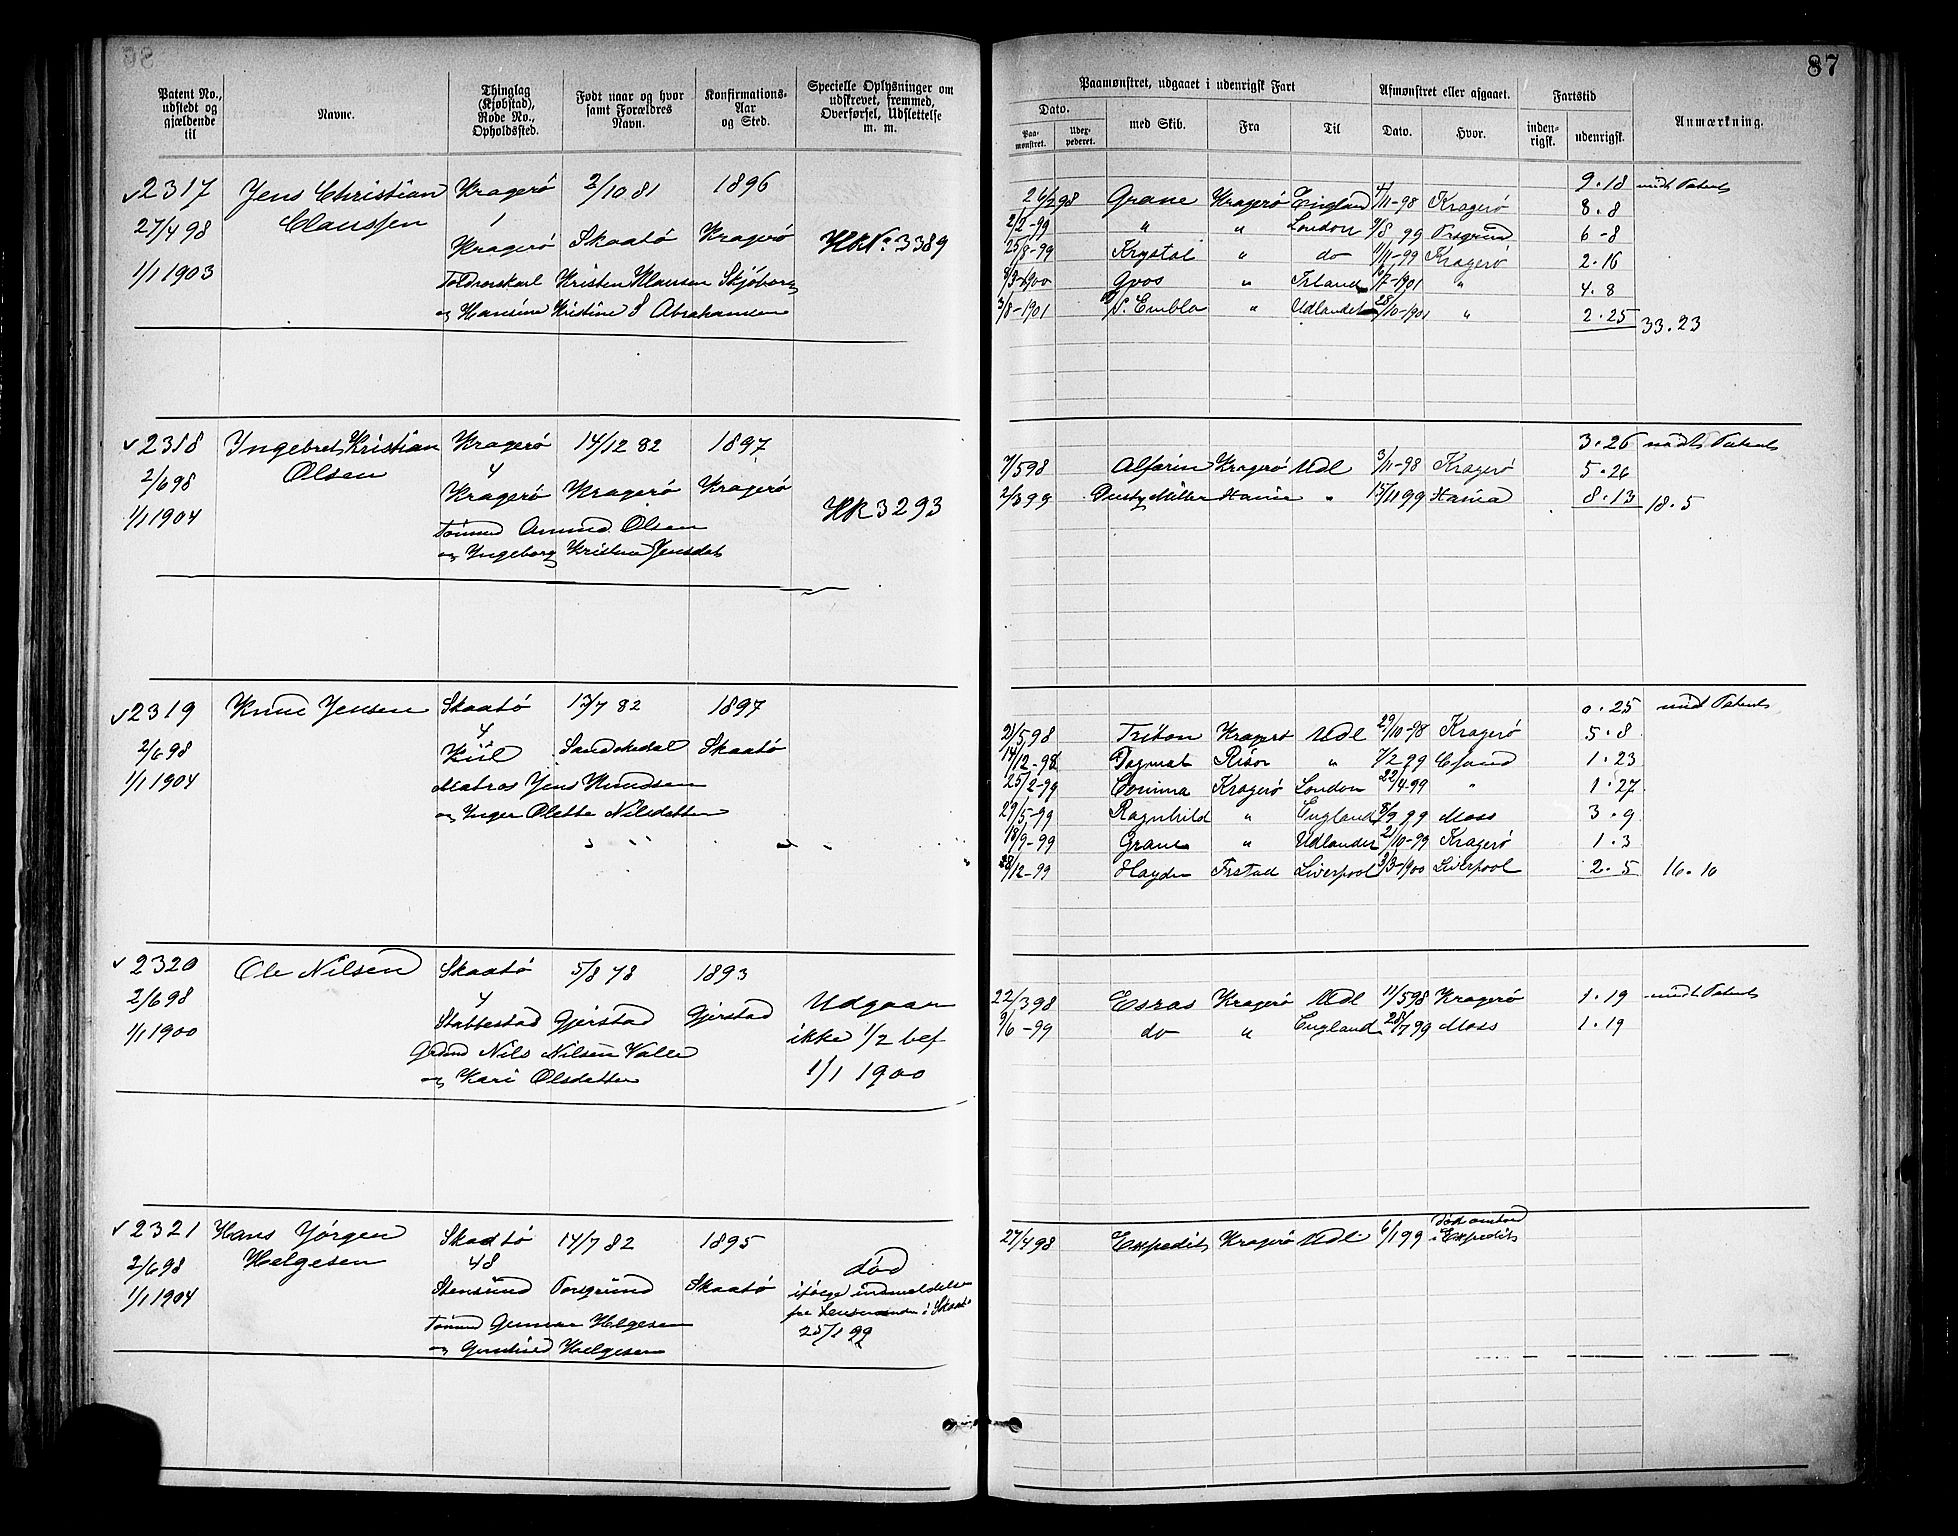 87
Patent No., udstedt og gjældende til
Navne.
Thinglag (Kjøbstad), Rode No., Opholdssted.
Født naar og hvor samt Forældres Navn.
Konfirmations-Aar og Sted.
Specielle Oplysninger om udskrevet, fremmed, Overførsel, Udslettelse m. m.
Paamønstret, udgaaet i udenrigsk Fart
Dato.
Paa-mønstret.
Uder-pederet.
med Skib.
Fra
Til
Afmønstret eller afgaaet.
Dato.
Hvor.
Fartstid
inden-rigsk.
udenrigsk.
Anmærkning.
2317 Jens Christian Kragerø 2/10 81 1896
27/4 98 Claussen 1
Kragerø Skaatø Kragerø HK No 3389
1/1 1903 Kristen Klausen
og Hansine Kristine Abrahamsen
9.18 indt Patent
98 Grane Kragerø England 4/11-98 Kragerø 8.8
2/2-99 " " London 99 6-8
25/8-99 Krystal " do 1/11-99 Kragerø 2.16
1900 " -1901 " 4.8
3/8-1901 Embla " Udlandet 28/10-1901 " 2.25 33.23
2318 Ingebret Kristian Kragerø 14/12 82 1897
2/6 98 Olsen 4
Kragerø Kragerø Kragerø HK 3293
1/1 1904 Tømmd Olsen
og Ingeborg Kristine Jensdat
3.26 indt Patent
7/5 98 Alfarin Kragerø Udl 3/11-98 Kragerø 5.26
2/3 99 Dusty Miller " 15/11 99 8.13 18.5
2319 Knud Jensen Skaatø 13/7 82 1897
2/6 98 4
Kiil Sandøkedal Skaatø
1/1 1904 Matros Jens Knudsen
og Inger Olette Nilsdatter
0.25 indt Patent
21/5 98 Triton Kragerø Udl 29/10-98 Kragerø 5.8
14/12-98 Dagmar Risør " 7/2 99 1.23
25/2-99 Corinna Kragerø London 22/4 99 " 1.27
29/5-99 Ragnhild " England 99 Moss 3.9
18/9-99 Grane " Udlandet 21/10-99 Kragerø 1.3
28/12-99 Liverpool 3/3-1900 Liverpool 2.5 16.10
2320 Ole Nilsen Skaatø 5/8 78 1893
2/6 98 4
Stabbestad Gjerstad Gjerstad Udgaar
1/1 1900 Nils Nilsen Valle ikke 1/2 bef
og Kari Olsdatter 1/1 1900
22/3 98 Esras Kragerø Udl 11/5 98 Kragerø 1.19 indt Patent
9/6-99 do " England 28/7 99 Moss 1.19
2321 Hans Jørgen Skaatø 14/7 82 1895
2/6 98 Helgesen 48 død
1/1 1904 Stensund Porsgrund Skaatø ifølge indmeldelse
fra Lensmanden i Skaatø
Tømmd Gunnar Helgesen 25/1 99
og Helgesen
27/4 98 Expedit Kragerø Udl 6/1 99 død ombord i Expedit